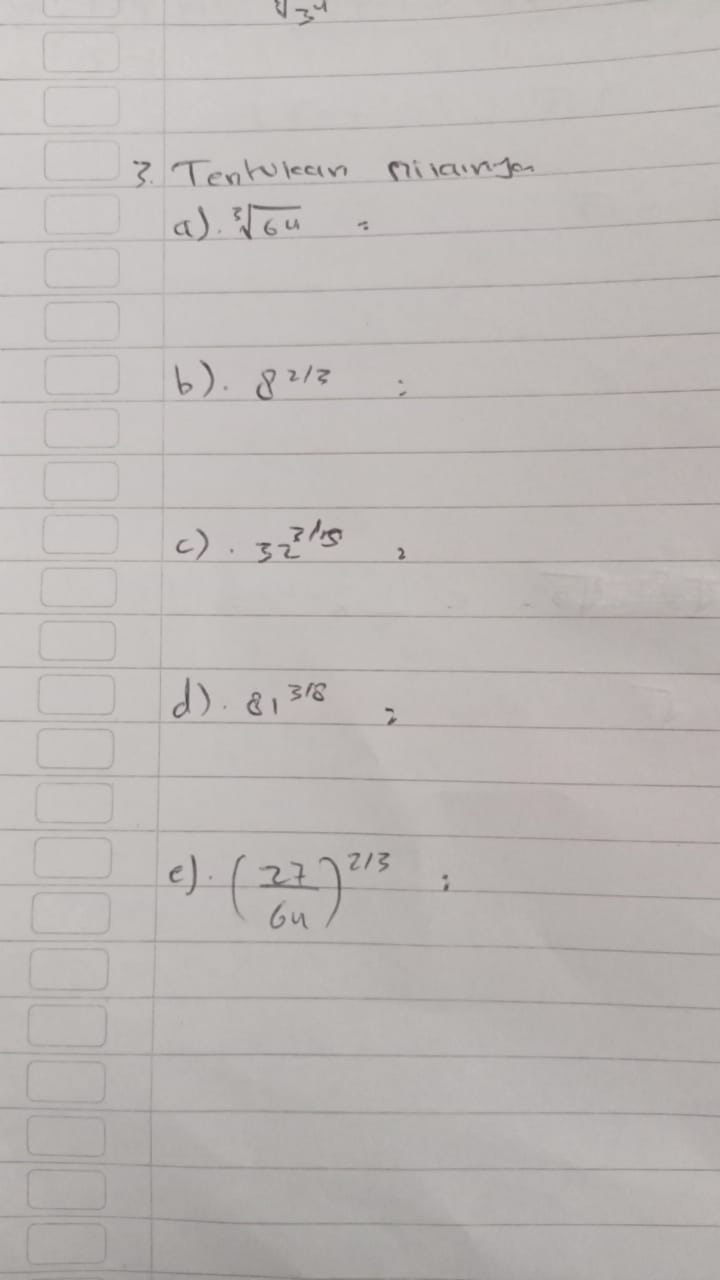 ∜3⁴
3. Tentukan nilainya
a). ³√64 =
b). 8^2/3 =
c). 32^3/5 =
d). 81^3/8 =
e). (27/64)^2/3 =